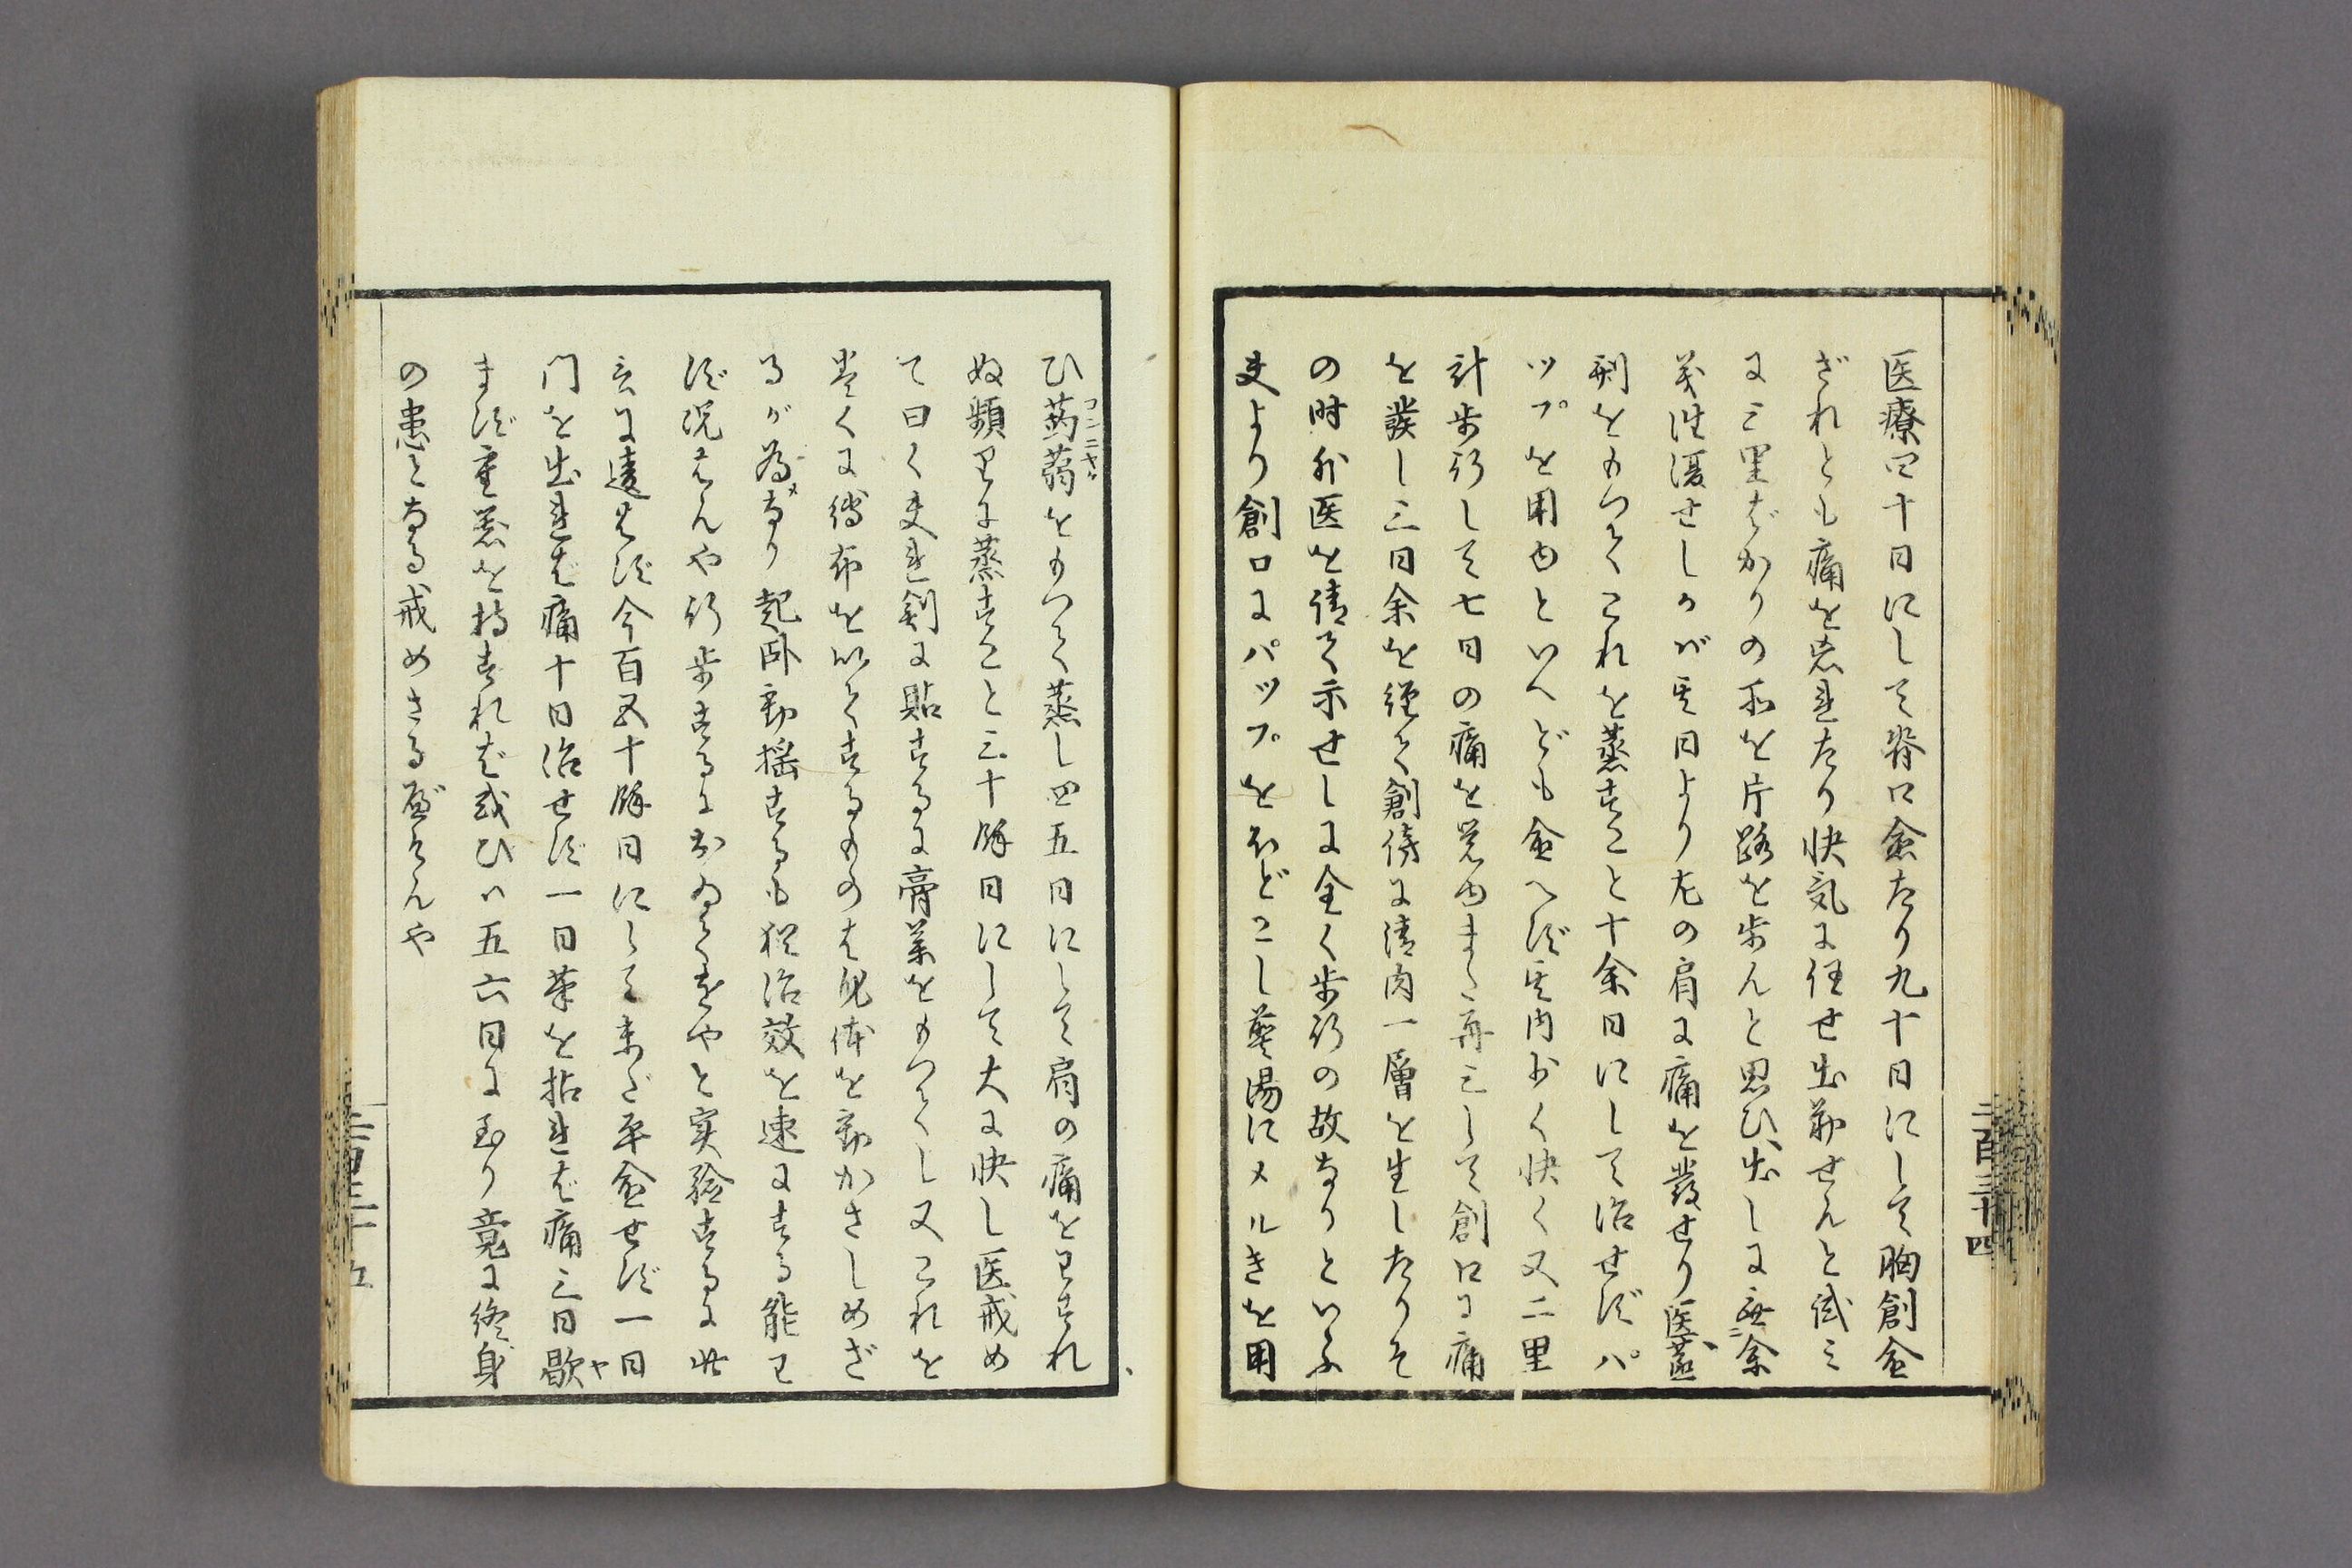 医療四十日にして脊口愈たり九十日にして胸創愈
ざれとも痛を忘れたり快気に任せ出勤せんと試ミ
に三里ばかりの所を片路を歩んと思ひ出しに無余
義往復せしカバ其日より左の肩に痛を發せり医蒸
剤をもつてこれを蒸すこと十余日にして治せずパ
ツプを用ゆといへども愈へず其内少く快く又二里
計歩行して七日の痛を覚ゆまた再三して創口に痛
を發し三日余を経て創傍に漬肉一層を生したりそ
の時外医を倩て示せしに全く歩行の故なりといふ
夫より創口にパツプをほどこし藥湯にメルきを用
二百三十四
ひ蒟蒻をもつて蒸し四五日にして肩の痛をわすれ
コンニヤク
ぬ頻りに蒸すこと三十餘日にして大に快し医戒め
て曰く夫れ創に貼するに膏薬をもつてし又これを
巻くに縛布を以てするものは身体を動かさしめざ
るが為なり起卧動揺するも猶治效を速にする能わ
メ
ず況はんや行歩するにおゐてをやと実験するに此
言に違はず今百五十餘日にして未だ平愈せず一日
門を出れば痛十日治せず一日筆を拈れば痛三日歇
ヤ
まず重荷を持すれば或ひハ五六日に至り竟に終身
の患となる戒めさる盛けんや
二百三十五